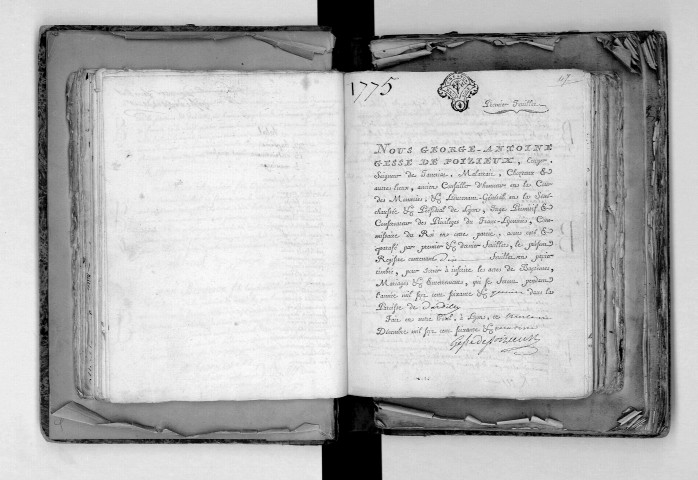 1775
47
Premier Feuillet
NOUS GEORGE-ANTOINE
GESSE DE POIZIEUX, Ecuyer
Seigneur de Janneias, Malatrait, Chezeneuve &
autres lieux, ancien Conseiller d'honneur en la Cour
des Monnoies, & Lieutenant-Général en la Séné-
chaussée & Présidial de Lyon, Juge Primitif &
Conservateur des Privileges du Franc-Lyonnois, Com-
missaire du Roi en cette partie, avons coté &
paraphé par premier & dernier Feuillets, le présent
Registre contenant Feuillets en papier
timbré, pour servir à inscrire les actes de Baptêmes,
Mariages & Enterremens, qui se feront pendant
l'année mil sept cent soixante & quinze dans la
Paroisse de Dardilly
Fait en notre Hôtel, à Lyon, le
Décembre mil sept cent soixante &
Gesse de Poizieux